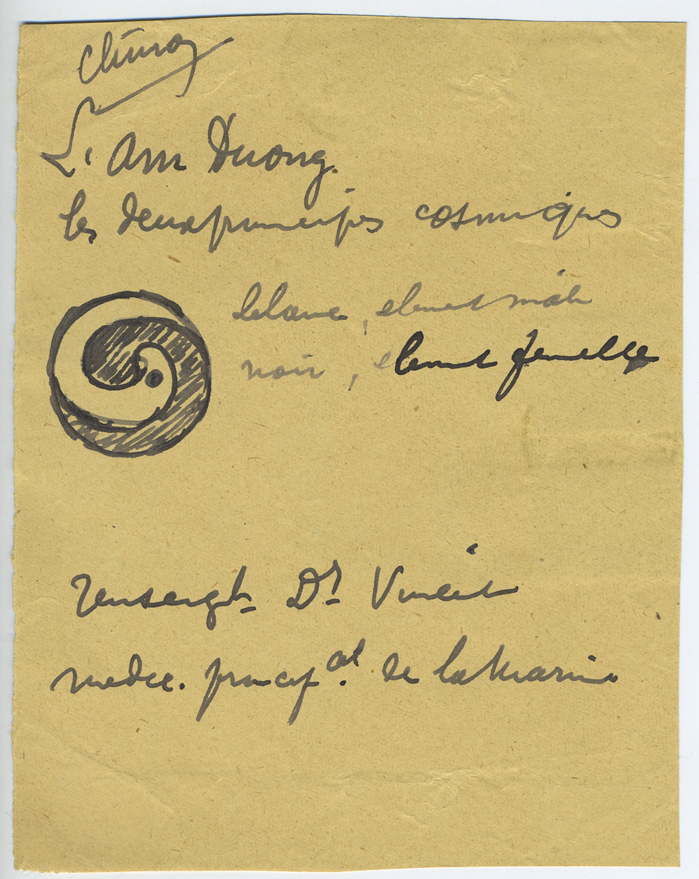 Chinoi
L'Am Duong.
les deux principes cosmiques
blanc, element mâle
noir, element femelle
renseigt Dr Vincent
medec. princip al. de la Marine